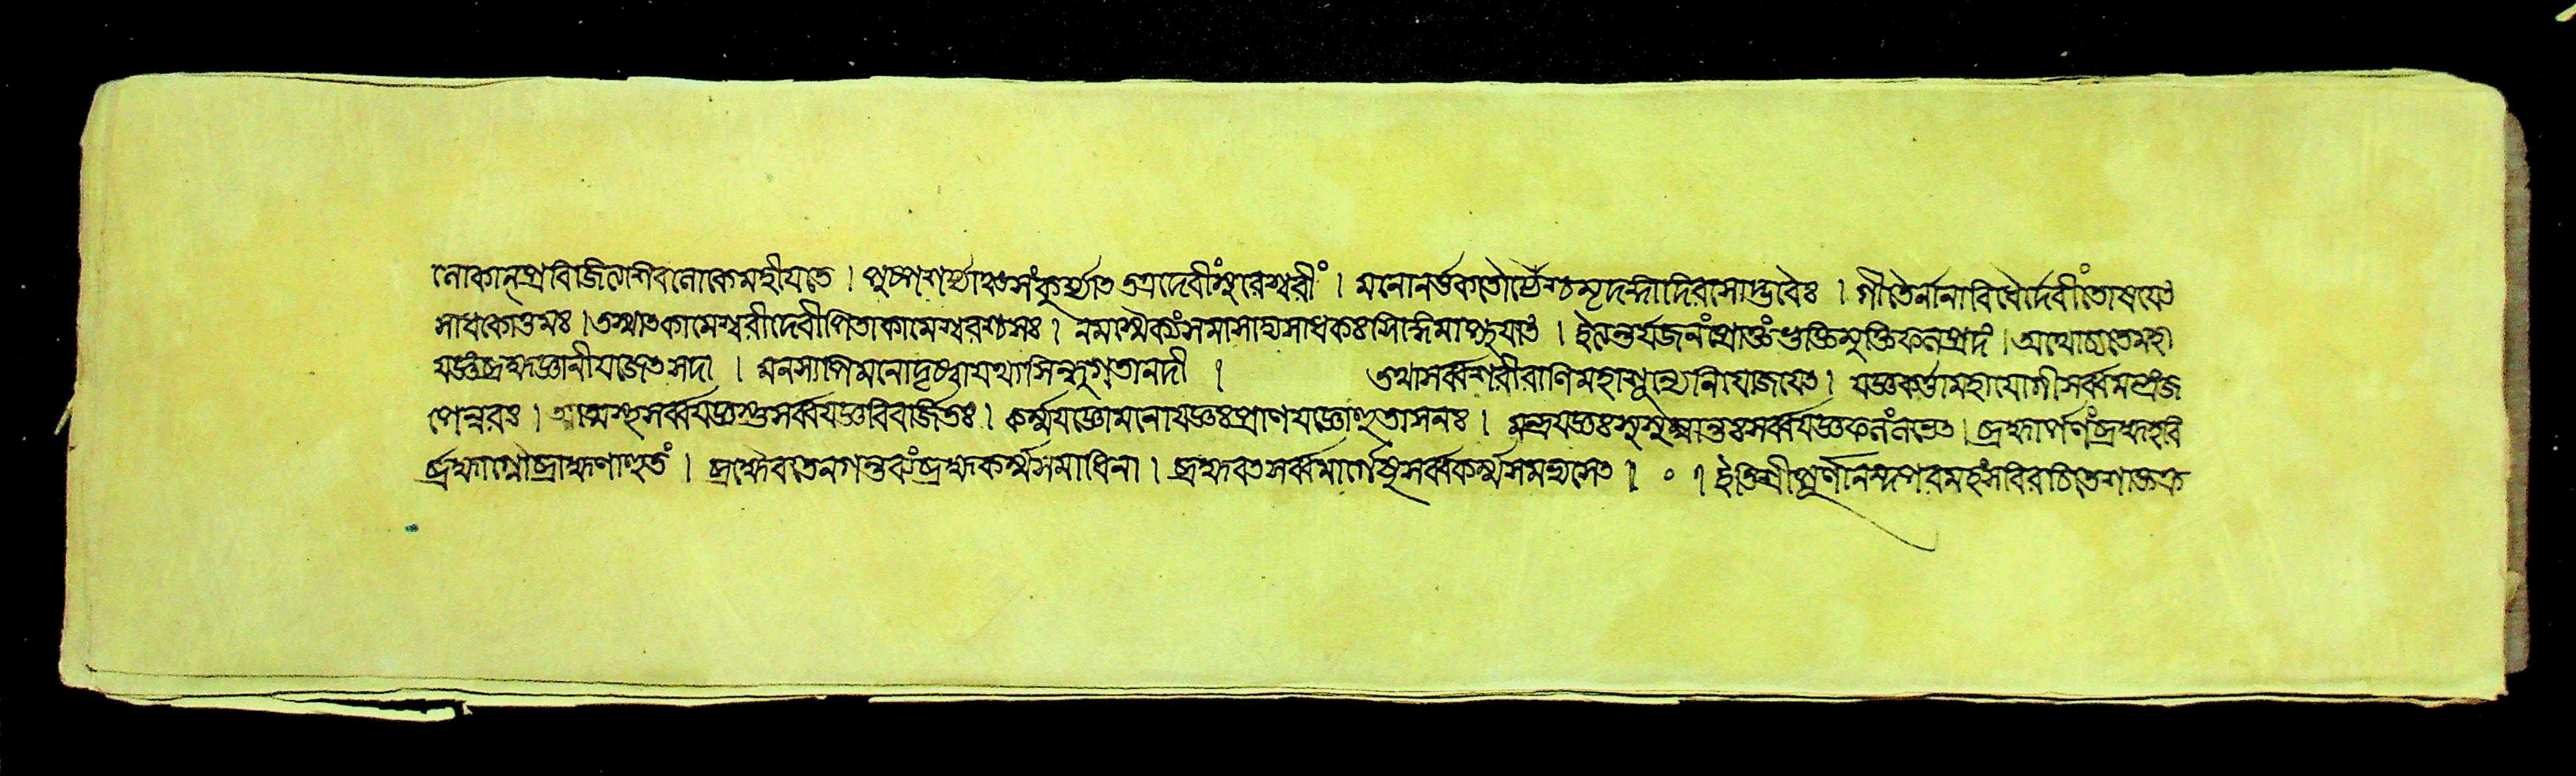 লোকান্ প্রবিজিত্য শিবলোকে মহীয়তে । পুষ্পশয্যাঞ্চ সংকুর্য্যাৎ তত্র দেবীং সুরেশ্বরীং । মনো নর্ত্তক তৌর্য্যৈশ্চ মৃদঙ্গাদি রসোদ্ভবৈঃ । গীতৈর্নানাবিধৈর্দেবীং তোষয়েৎ
সাধকোত্তমঃ । তস্মাৎ কামেশ্বরী দেবী পিতা কামেশ্বরশ্চ সঃ । সমাসাদ্য সাধকঃ সিদ্ধিমাপ্নুয়াৎ । ইত্যন্তর্যজনং প্রোক্তং ভুক্তিমুক্তিফলপ্রদং । অথোচ্যতে মহা
যজ্ঞং ব্রহ্মজ্ঞানী যজেৎ সদা । মনসাপি মনো দৃষ্ট্বা যথা সিন্ধুগতা নদী । তথা সর্ব্বশরীরাণি মহাশূন্যে নিযোজয়েৎ । যজ্ঞকর্ত্তা মহাযোগী সর্ব্বমন্ত্রং জ
পেন্নরঃ । আত্মস্থ সর্ব্বযজ্ঞস্তু সর্ব্বযজ্ঞবিবর্জিতঃ । কর্ম্মযজ্ঞো মনোযজ্ঞঃ প্রাণযজ্ঞো হুতাসনঃ । মন্ত্রযজ্ঞঃ সর্ব্বযজ্ঞফলং লভেৎ । ব্রহ্মার্পণং ব্রহ্মহবি
র্ব্রহ্মাগ্নৌ ব্রহ্মণাহুতং । ব্রহ্মৈব তেন গন্তব্যং ব্রহ্মকর্ম্মসমাধিনা । ব্রহ্মবৎ সর্ব্বমার্গেষু সর্ব্বকর্ম্ম সমভ্যসেৎ । ० । ইতি শ্রীপূর্ণানন্দপরমহংস বিরচিতে শাক্তক্র